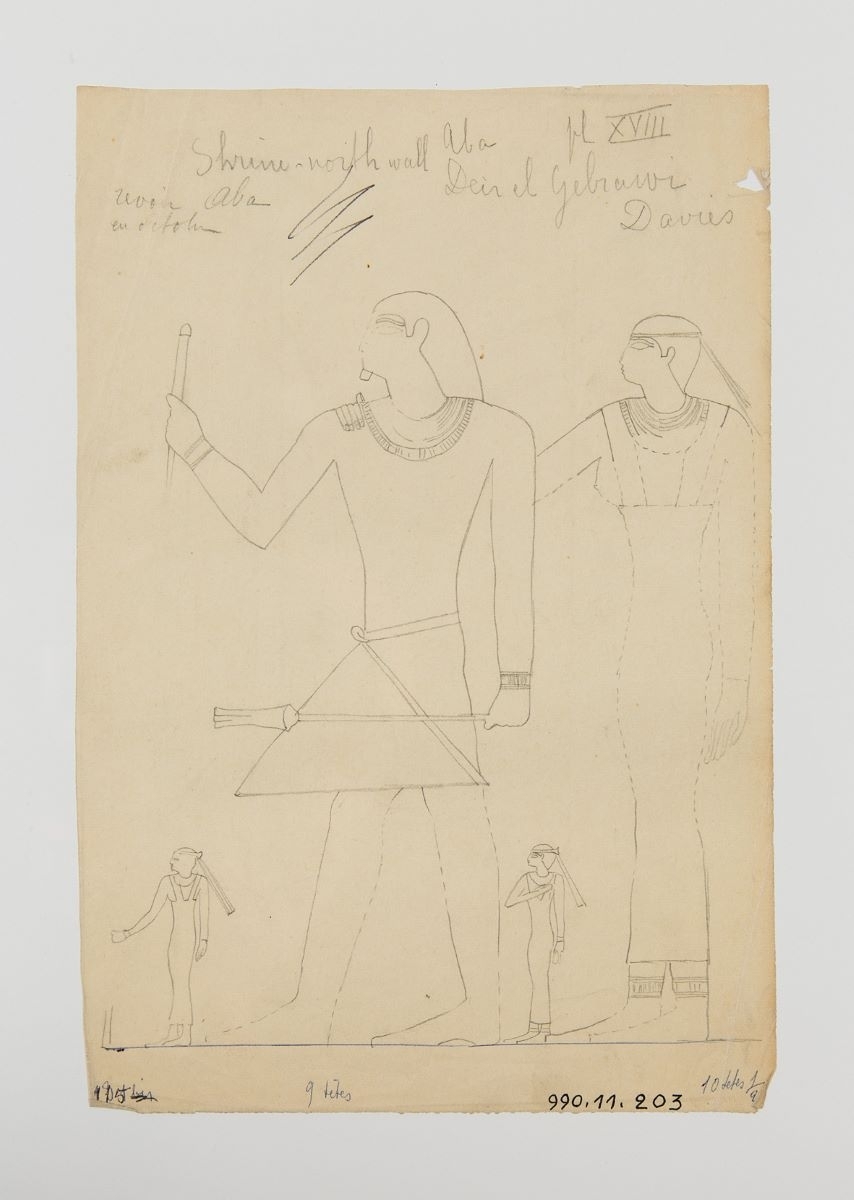 Aba pl XVIII
Shrine - north wall
Deir el Gebrawi
Davies
revoir Aba
en octobre
9 têtes
10 têtes 1/2
990.11.203